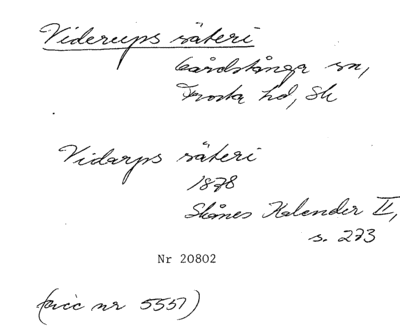 Viderups säteri
Gårdstånga sn,
Frosta hd, Sk
Vidarps säteri
1878
Skånes Kalender II,
s. 273
Nr 20802
(acc nr 5557)